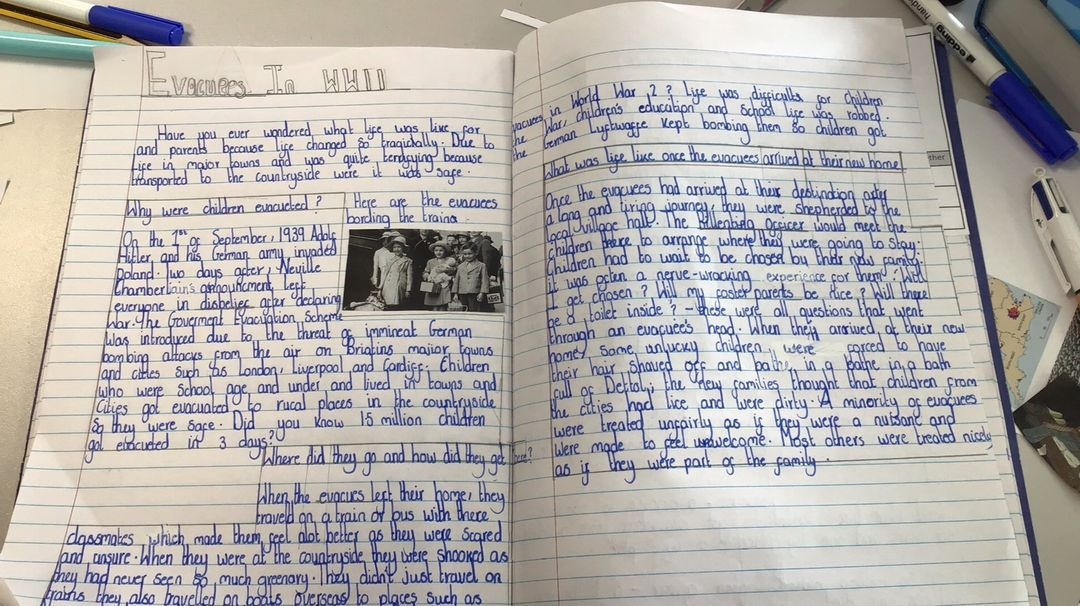 Evacuees In WWII
Have you ever wondered what life was like for
and parents because life changed so tragically. Due to
life in major towns and was quite terrifying because
transported to the countryside were it was safe.
Why were children evacuated?
Here are the evacuees
bording the trains
On the 1st of September, 1939 Adolf
Hitler and his German army invaded
Poland. Two days after, Neville
Chamberlain's announcment, left
everyone in disbelief after declaring
War. The Goverment Evacuation Scheme
was introduced due to the threat of immineat German
bombing attacks from the air on Britains major towns
and cities such as London, Liverpool and Cardiff. Children
who were School age and under and lived in towns and
Cities got evacuated to rural places in the countryside
So they were safe. Did you know 1.5 million children
got evacuated in 3 days?
Where did they go and how did they get there?
When the evacues left their home, they
traveld on a train or bus with there
classmates which made them feel alot better as they were scared
and unsure. When they were at the countryside they were shooked as
they had never seen so much greenary. They didn't just travel on
trains they also travelled on boats overseas to places such as
evacuees in World War 2? Life was difficults for children
the War, children's education and school life was robbed.
the German Luftwaffe kept bombing them so children got
What was life like once the evacuees arrived at their new home
Once the evacuees had arrived at their destination after
a long and tiring journey, they were shepherded to the
local village hall. The Billeating officer would meet the
children there to arrange where they were going to stay.
Children had to wait to be chosen by their new family:
it was often a nerve-wracking experience for them. Will
I get chosen? Will my foster parents be nice? Will there
be a toilet inside? - these were all questions that went
through an evacuee's head. When they arrived at their new
home, some unlucky children were forced to have
their hair shaved off and bathe in a bathe in a bath
full of Dettol; the new families thought that children from
the cities had lice and were dirty. A minority of evacuees
were treated unfairly as if they were a nuisanc and
were made to feel unwelcome. Most others were treated nicely
as if they were part of the family.
ther
edding